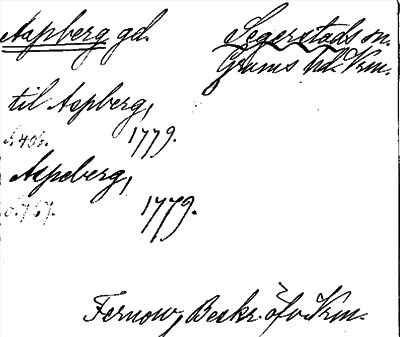 Aspberg gd. Segerstads sn.
Grums hd. Vrm.
til Aspberg,
s. 406. 1779.
Aspeberg,
s. 767. 1779.
Fernow, Beskr. öfv. Vrm.